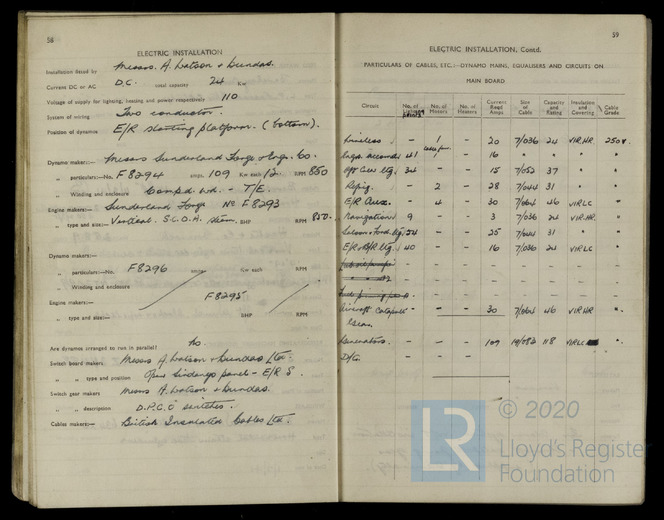 58
ELECTRIC INSTALLATION
Installation fitted by Messrs. A. Watson & Dundas.
Current DC or AC D.C. total capacity 24 Kw
Voltage of supply for lighting, heating and power respectively 110
System of wiring Two conductor.
Position of dynamos E/R starting platform. (bottom).
Dynamo makers:— Messrs Sunderland Forge & Eng. Co.
„ particulars:—No. F8294 amps. 109 Kw each 12. RPM 850
„ Winding and enclosure Compd. wd. - T/E.
Engine makers:— Sunderland Forge No F8293
„ type and size:— Vertical. S.C.D.A. steam. BHP RPM 850.
Dynamo makers:—
„ particulars:—No. F8296 amps. Kw each RPM
„ Winding and enclosure
Engine makers:— F8295
„ type and size:— BHP RPM
Are dynamos arranged to run in parallel? No.
Switch board makers Messrs A. Watson & Dundas Ltd.
„ „ type and position Open Sindanyo panel - E/R S.
Switch gear makers Messrs A. Watson & Dundas.
„ „ description D.P.C.O switches.
Cables makers:— British Insulated Cables Ltd.
59
ELECTRIC INSTALLATION, Contd.
PARTICULARS OF CABLES, ETC.:—DYNAMO MAINS, EQUALISERS AND CIRCUITS ON
MAIN BOARD
Circuit No. of Lighting points No. of Motors No. of Heaters Current Reqd Amps Size of Cable Capacity and Rating Insulation and Covering Cable Grade
Wireless. - 1 - 20 7/036 24 VIR.HR. 250V.
41 - 16 " " " "
Aft Crew Ltg. 34 - - 15 7/052 37 " "
Refrig. - 2 - 28 7/044 31 " "
E/R Aux. - 4 - 30 7/064 46 VIRLC "
Navigation 9 - - 3 7/036 24 VIR.HR. "
Saloon & Ford. Ltg. 54 - - 25 7/044 31 " "
E/R & B/R Ltg. 40 - - 16 7/036 24 VIRLC "
Aircraft Catapult - - - 30 7/064 46 VIRHR "
Generators. - - - 109 19/083 118 VIRLC "
D/G. - - -
© 2020
LR
Lloyd's Register
Foundation